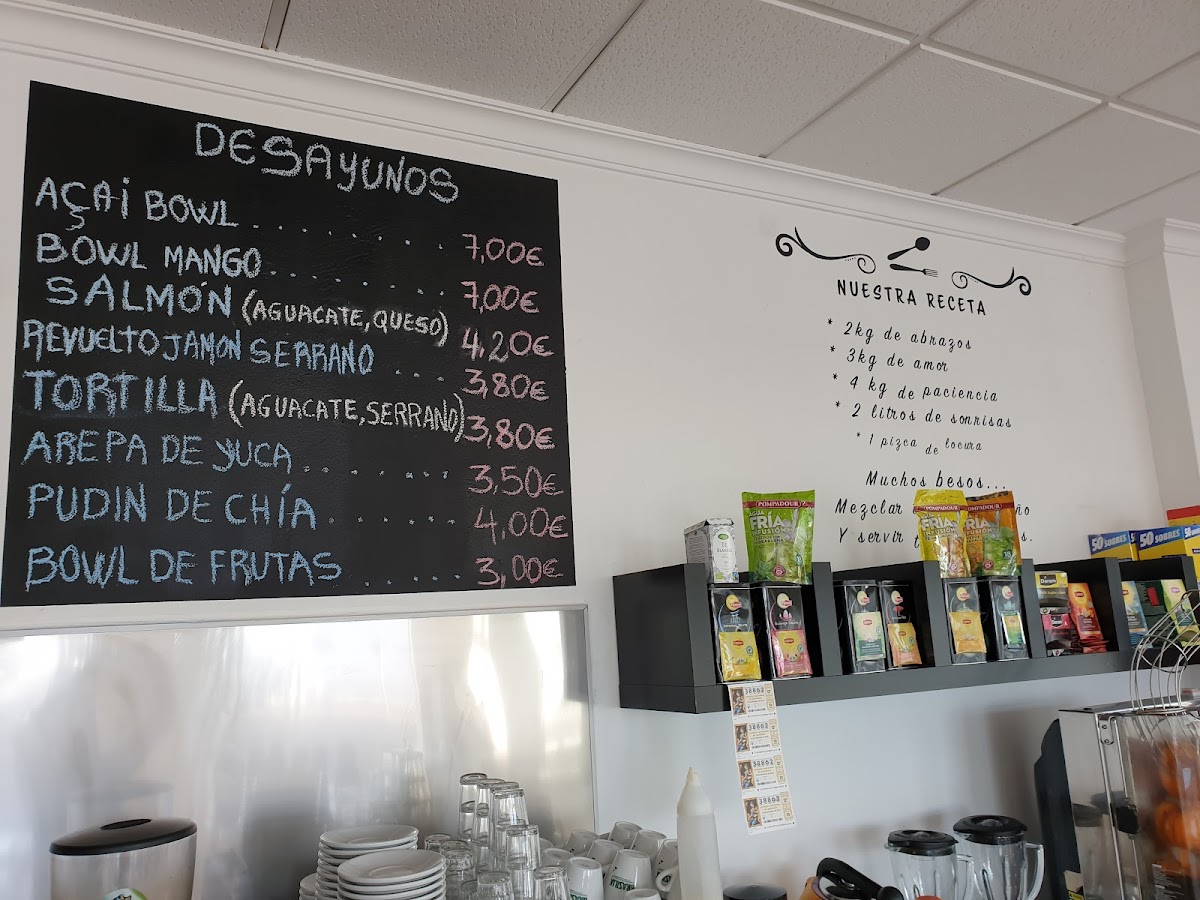 DESAYUNOS
AÇAI BOWL......... 7,00€
BOWL MANGO....... 7,00€
SALMÓN (AGUACATE, QUESO) 4,20€
REVUELTO JAMON SERRANO .... 3,80€
TORTILLA (AGUACATE, SERRANO) 3,80€
AREPA DE YUCA........ 3,50€
PUDIN DE CHÍA....... 4,00€
BOWL DE FRUTAS...... 3,00€
NUESTRA RECETA
* 2kg de abrazos
* 3kg de amor
* 4 kg de paciencia
* 2 litros de sonrisas
* 1 pizca de locura
Muchos besos...
Mezclar
Y servir
POMPADOUR
AGUA
FRÍA
INFUSIÓN
POMPADOUR
FRÍA
INFUSIÓN
POMPADOUR
FRÍA
50 SOBRES
50 SOBRES
38862
38862
38862
38862